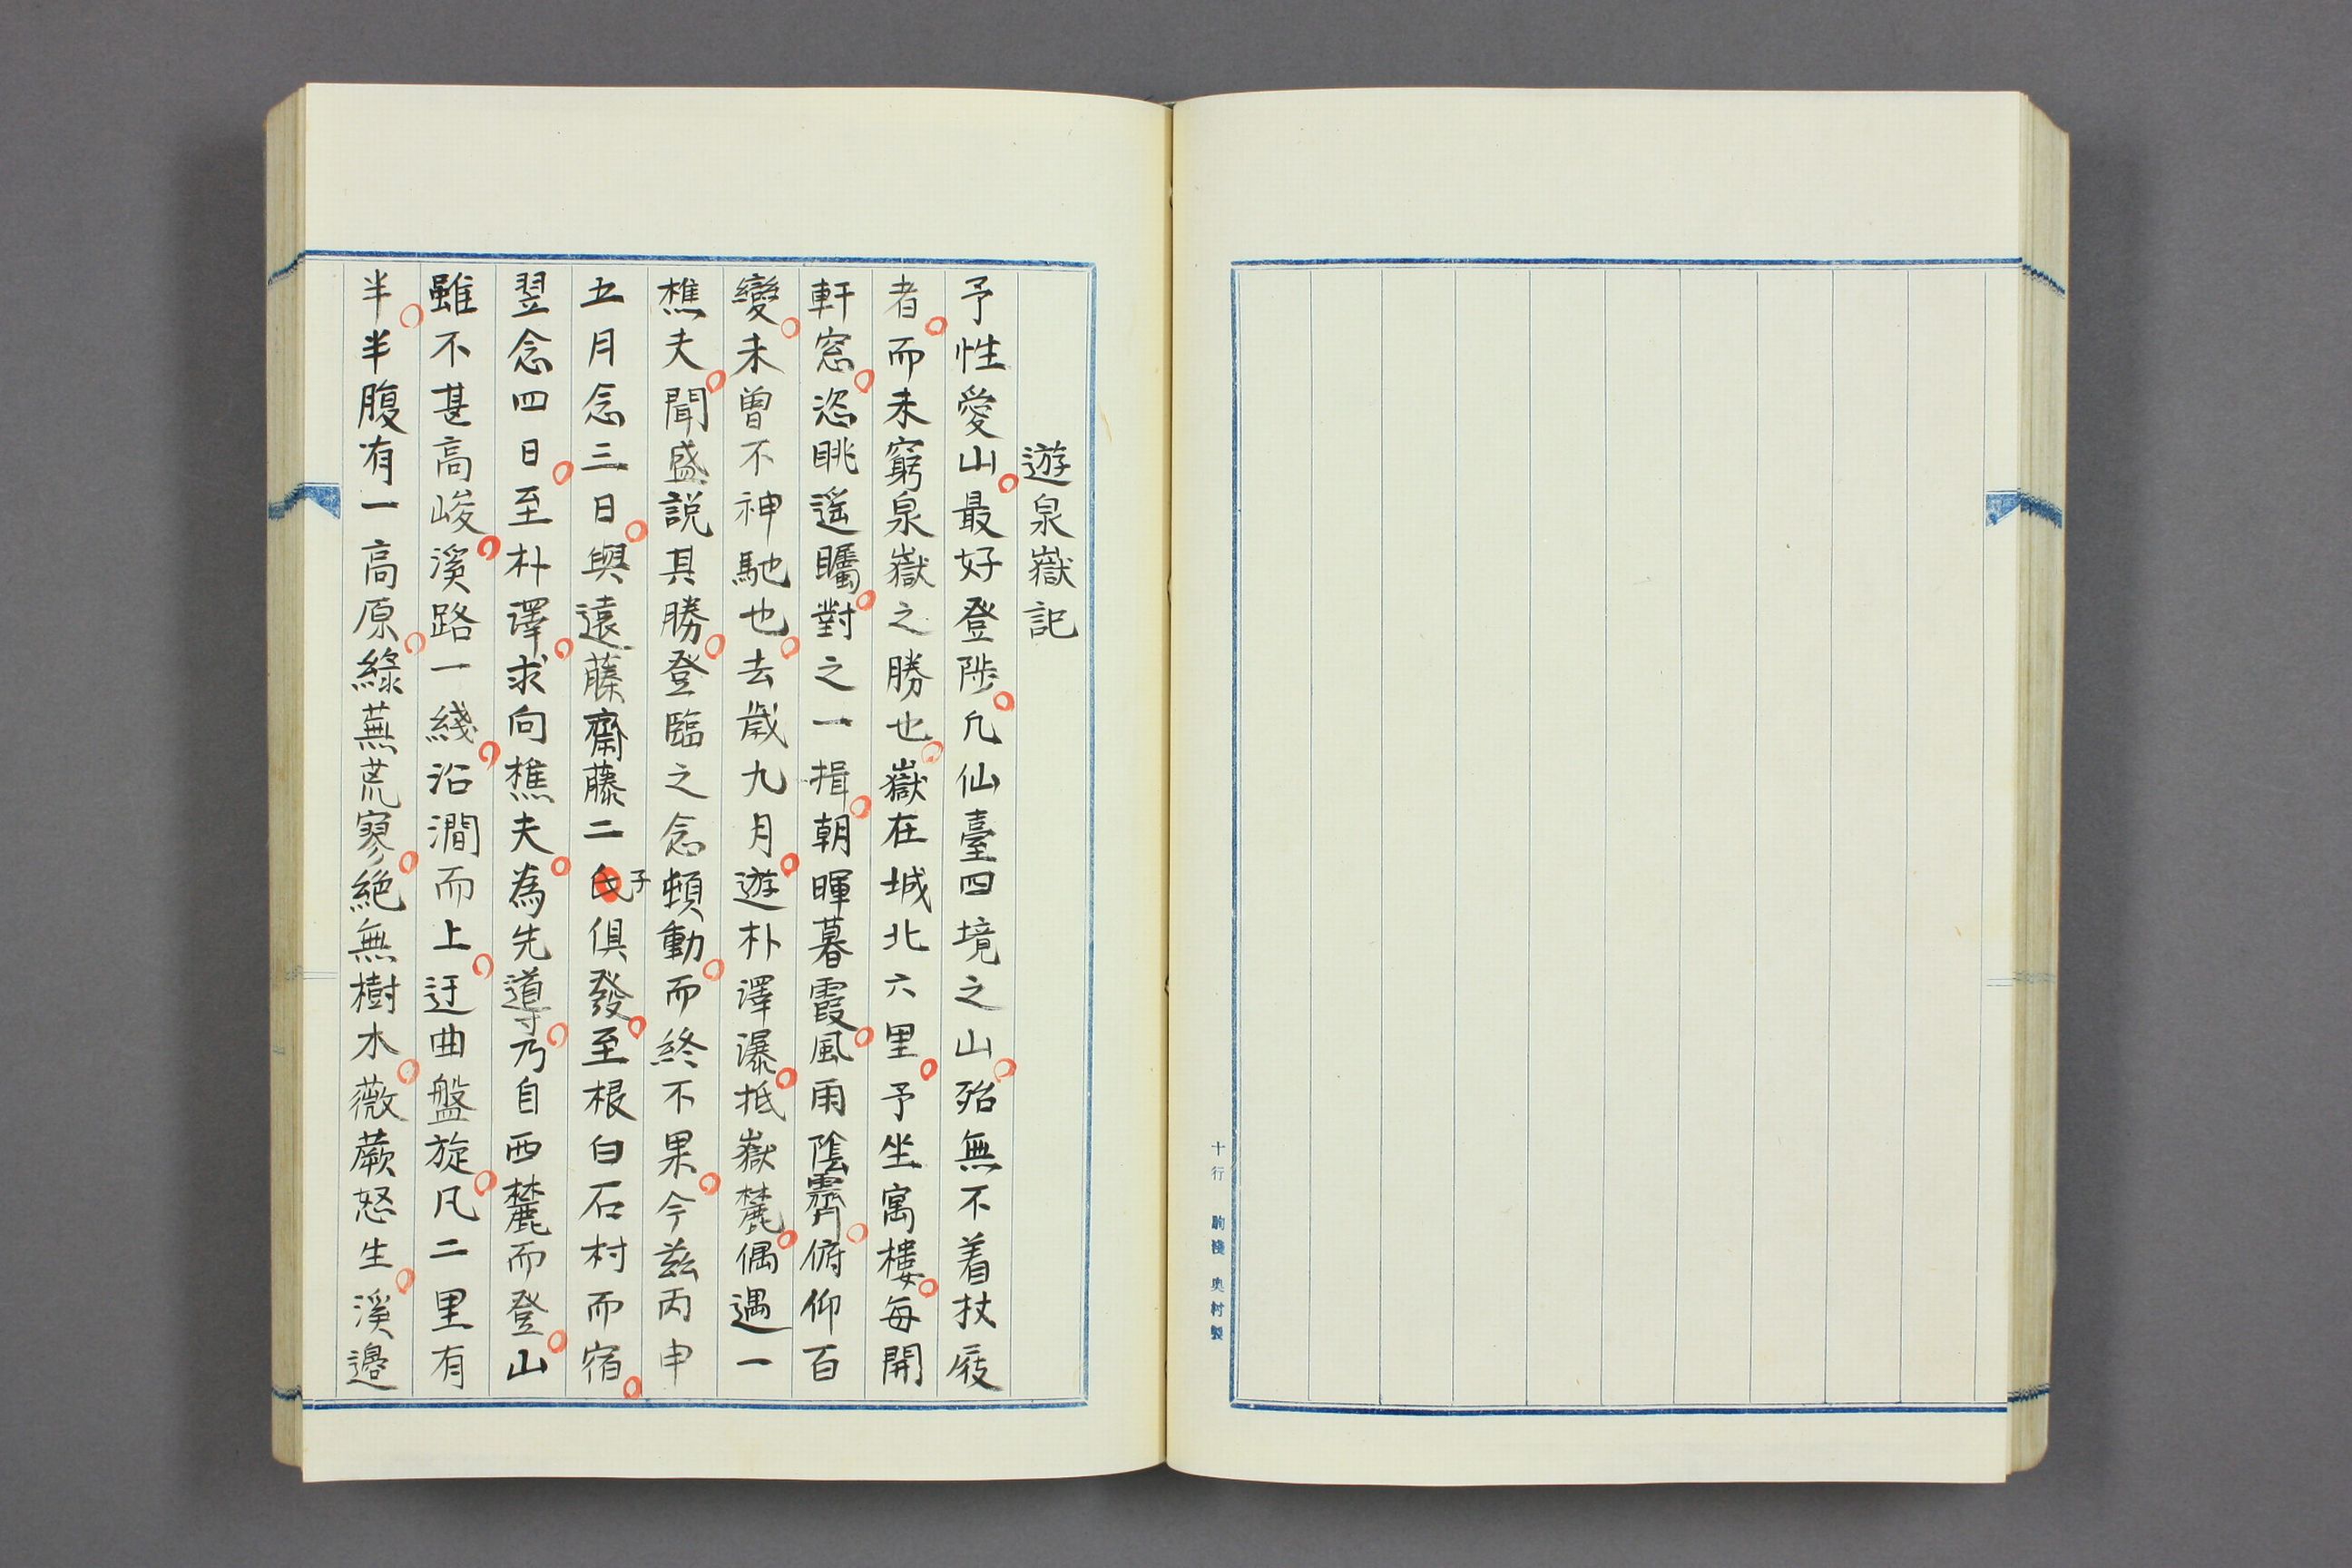 十行 駒棧 奥村製
遊泉嶽記
予性愛山。最好登陟。凢仙臺四境之山。殆無不着杖屐
者。而未窮泉嶽之勝也。嶽在城北六里。予坐寓樓。每開
軒窓。恣眺遥矚。對之一揖。朝暉暮霞。風雨陰霽。俯仰百
變。未曽不神馳也。去歳九月。遊朴澤瀑。抵嶽麓。偶遇一
樵夫。聞盛説其勝。登臨之念頓動。而終不果。今茲丙申
五月念三日。與遠藤齋藤二氏子俱發。至根白石村而宿。
翌念四日。至朴澤。求向樵夫。為先導。乃自西麓而登。山
雖不甚高峻。溪路一綫。沿澗而上。迂曲盤旋。凡二里有
半。半腹有一高原。綠蕪荒寥。絶無樹木。薇蕨怒生。溪邉